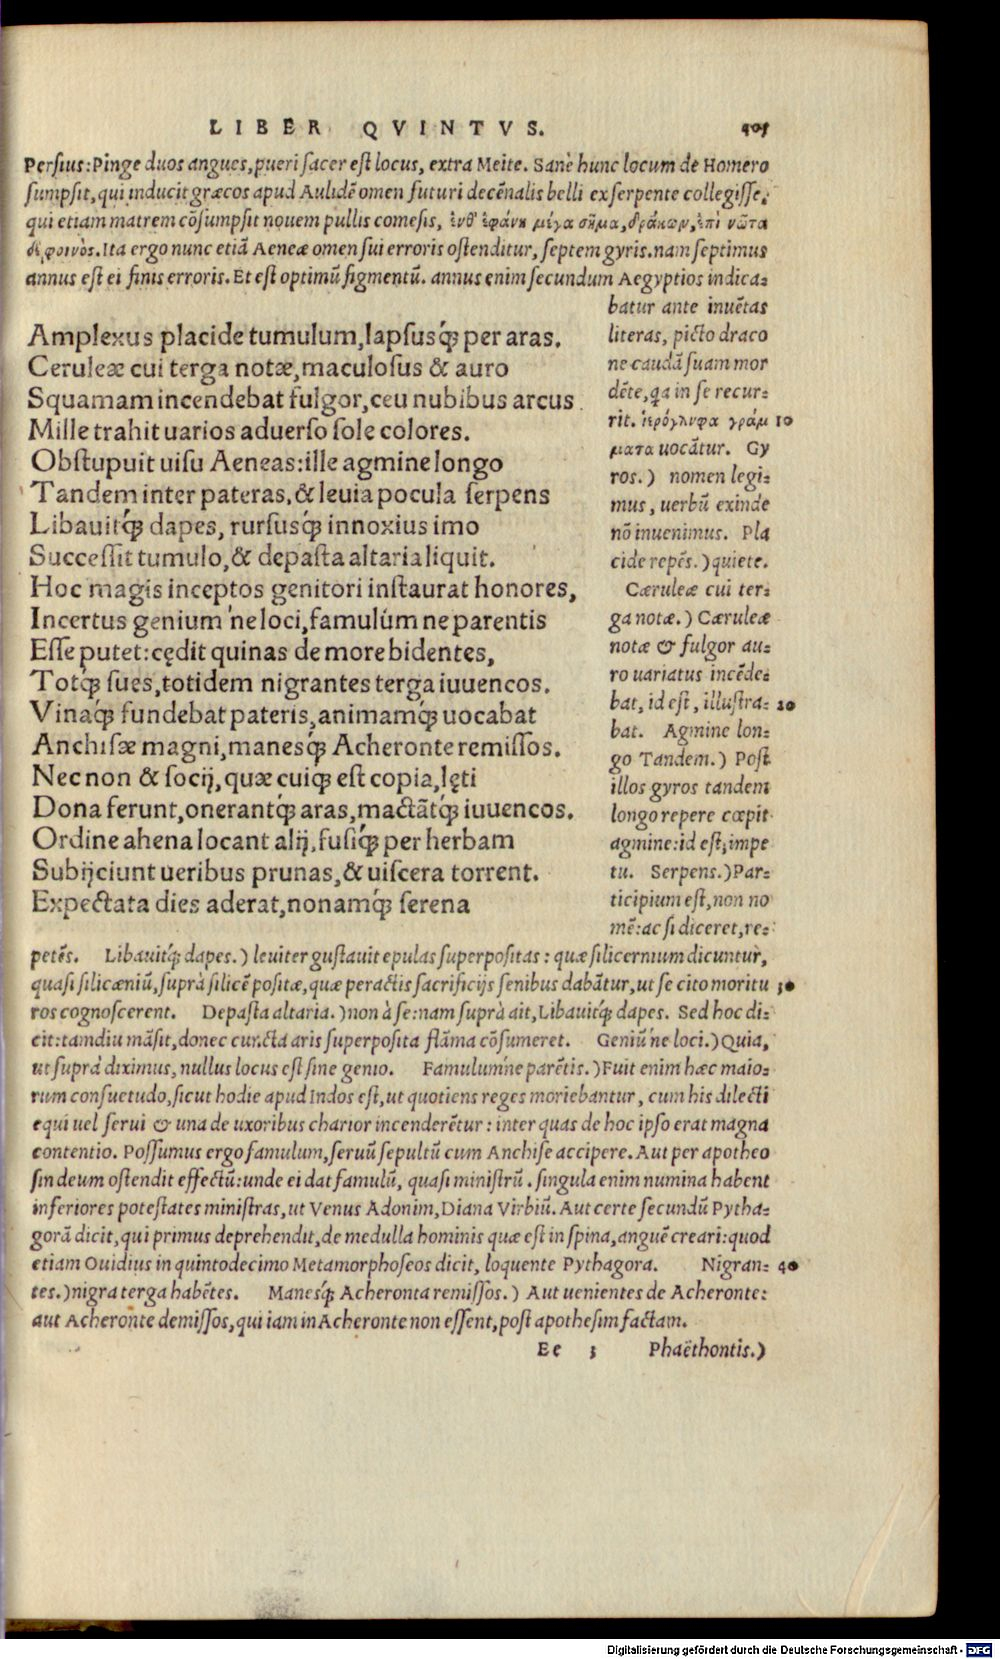 LIBER QVINTVS. 405
Persius: Pinge duos angues, pueri sacer est locus, extra Meite. Sanè hunc locum de Homero
sumpsit, qui inducit græcos apud Aulidē omen futuri decēnalis belli ex serpente collegisse,
qui etiam matrem cōsumpsit nouem pullis comesis, ἐνθ' ἐφάνη μέγα σῆμα, δράκων, ἐπὶ νῶτα
δαφοινὸς. Ita ergo nunc etiā Aeneæ omen sui erroris ostenditur, septem gyris. nam septimus
annus est ei finis erroris. Et est optimū figmentū. annus enim secundum Aegyptios indica-
batur ante inuētas
literas, picto draco
ne caudā suam mor
dēte, qa in se recur-
rit. ἱερόγλυφα γράμ 10
ματα uocātur. Gy
ros.) nomen legi-
mus, uerbū exinde
nō inuenimus. Pla
cide repēs.) quiete.
Cæruleæ cui ter-
ga notæ.) Cæruleæ
notæ & fulgor au-
ro uariatus incēde-
bat, id est, illustra- 20
bat. Agmine lon-
go Tandem.) Post
illos gyros tandem
longo repere cœpit
agmine: id est, impe
tu. Serpens.) Par-
ticipium est, non no
mē: ac si diceret, re-
Amplexus placide tumulum, lapsusq́; per aras.
Ceruleæ cui terga notæ, maculosus & auro
Squamam incendebat fulgor, ceu nubibus arcus
Mille trahit uarios aduerso sole colores.
Obstupuit uisu Aeneas: ille agmine longo
Tandem inter pateras, & leuia pocula serpens
Libauitq́; dapes, rursusq́; innoxius imo
Successit tumulo, & depasta altaria liquit.
Hoc magis inceptos genitori instaurat honores,
Incertus genium'ne loci, famulúm ne parentis
Esse putet: cędit quinas de more bidentes,
Totq́; sues, totidem nigrantes terga iuuencos.
Vinaq́; fundebat pateris, animamq́; uocabat
Anchisæ magni, manesq́; Acheronte remissos.
Nec non & socij, quæ cuiq; est copia, lęti
Dona ferunt, onerantq́; aras, mactātq́; iuuencos.
Ordine ahena locant alij, fusiq́; per herbam
Subijciunt ueribus prunas, & uiscera torrent.
Expectata dies aderat, nonamq́; serena
petēs. Libauitq́; dapes.) leuiter gustauit epulas superpositas: quæ silicernium dicuntur,
quasi silicæniū, suprà silicē positæ, quæ peractis sacrificijs senibus dabātur, ut se cito moritu 30
ros cognoscerent. Depasta altaria.) non à se: nam suprà ait, Libauitq́; dapes. Sed hoc di-
cit: tamdiu māsit, donec cuncta aris superposita flāma cōsumeret. Geniū'ne loci.) Quia,
ut suprà diximus, nullus locus est sine genio. Famulum'ne parētis.) Fuit enim hæc maio-
rum consuetudo, sicut hodie apud Indos est, ut quotiens reges moriebantur, cum his dilecti
equi uel serui & una de uxoribus charior incenderētur: inter quas de hoc ipso erat magna
contentio. Possumus ergo famulum, seruū sepultū cum Anchise accipere. Aut per apotheo
sin deum ostendit effectū: unde ei dat famulū, quasi ministrū. singula enim numina habent
inferiores potestates ministras, ut Venus Adonim, Diana Virbiū. Aut certe secundū Pytha-
gorā dicit, qui primus deprehendit, de medulla hominis quæ est in spina, anguē creari: quod
etiam Ouidius in quintodecimo Metamorphoseos dicit, loquente Pythagora. Nigran- 40
tes.) nigra terga habētes. Manesq́; Acheronta remissos.) Aut uenientes de Acheronte:
aut Acheronte demissos, qui iam in Acheronte non essent, post apothesim factam.
Ee 3 Phaëthontis.)
Digitalisierung gefördert durch die Deutsche Forschungsgemeinschaft - DFG